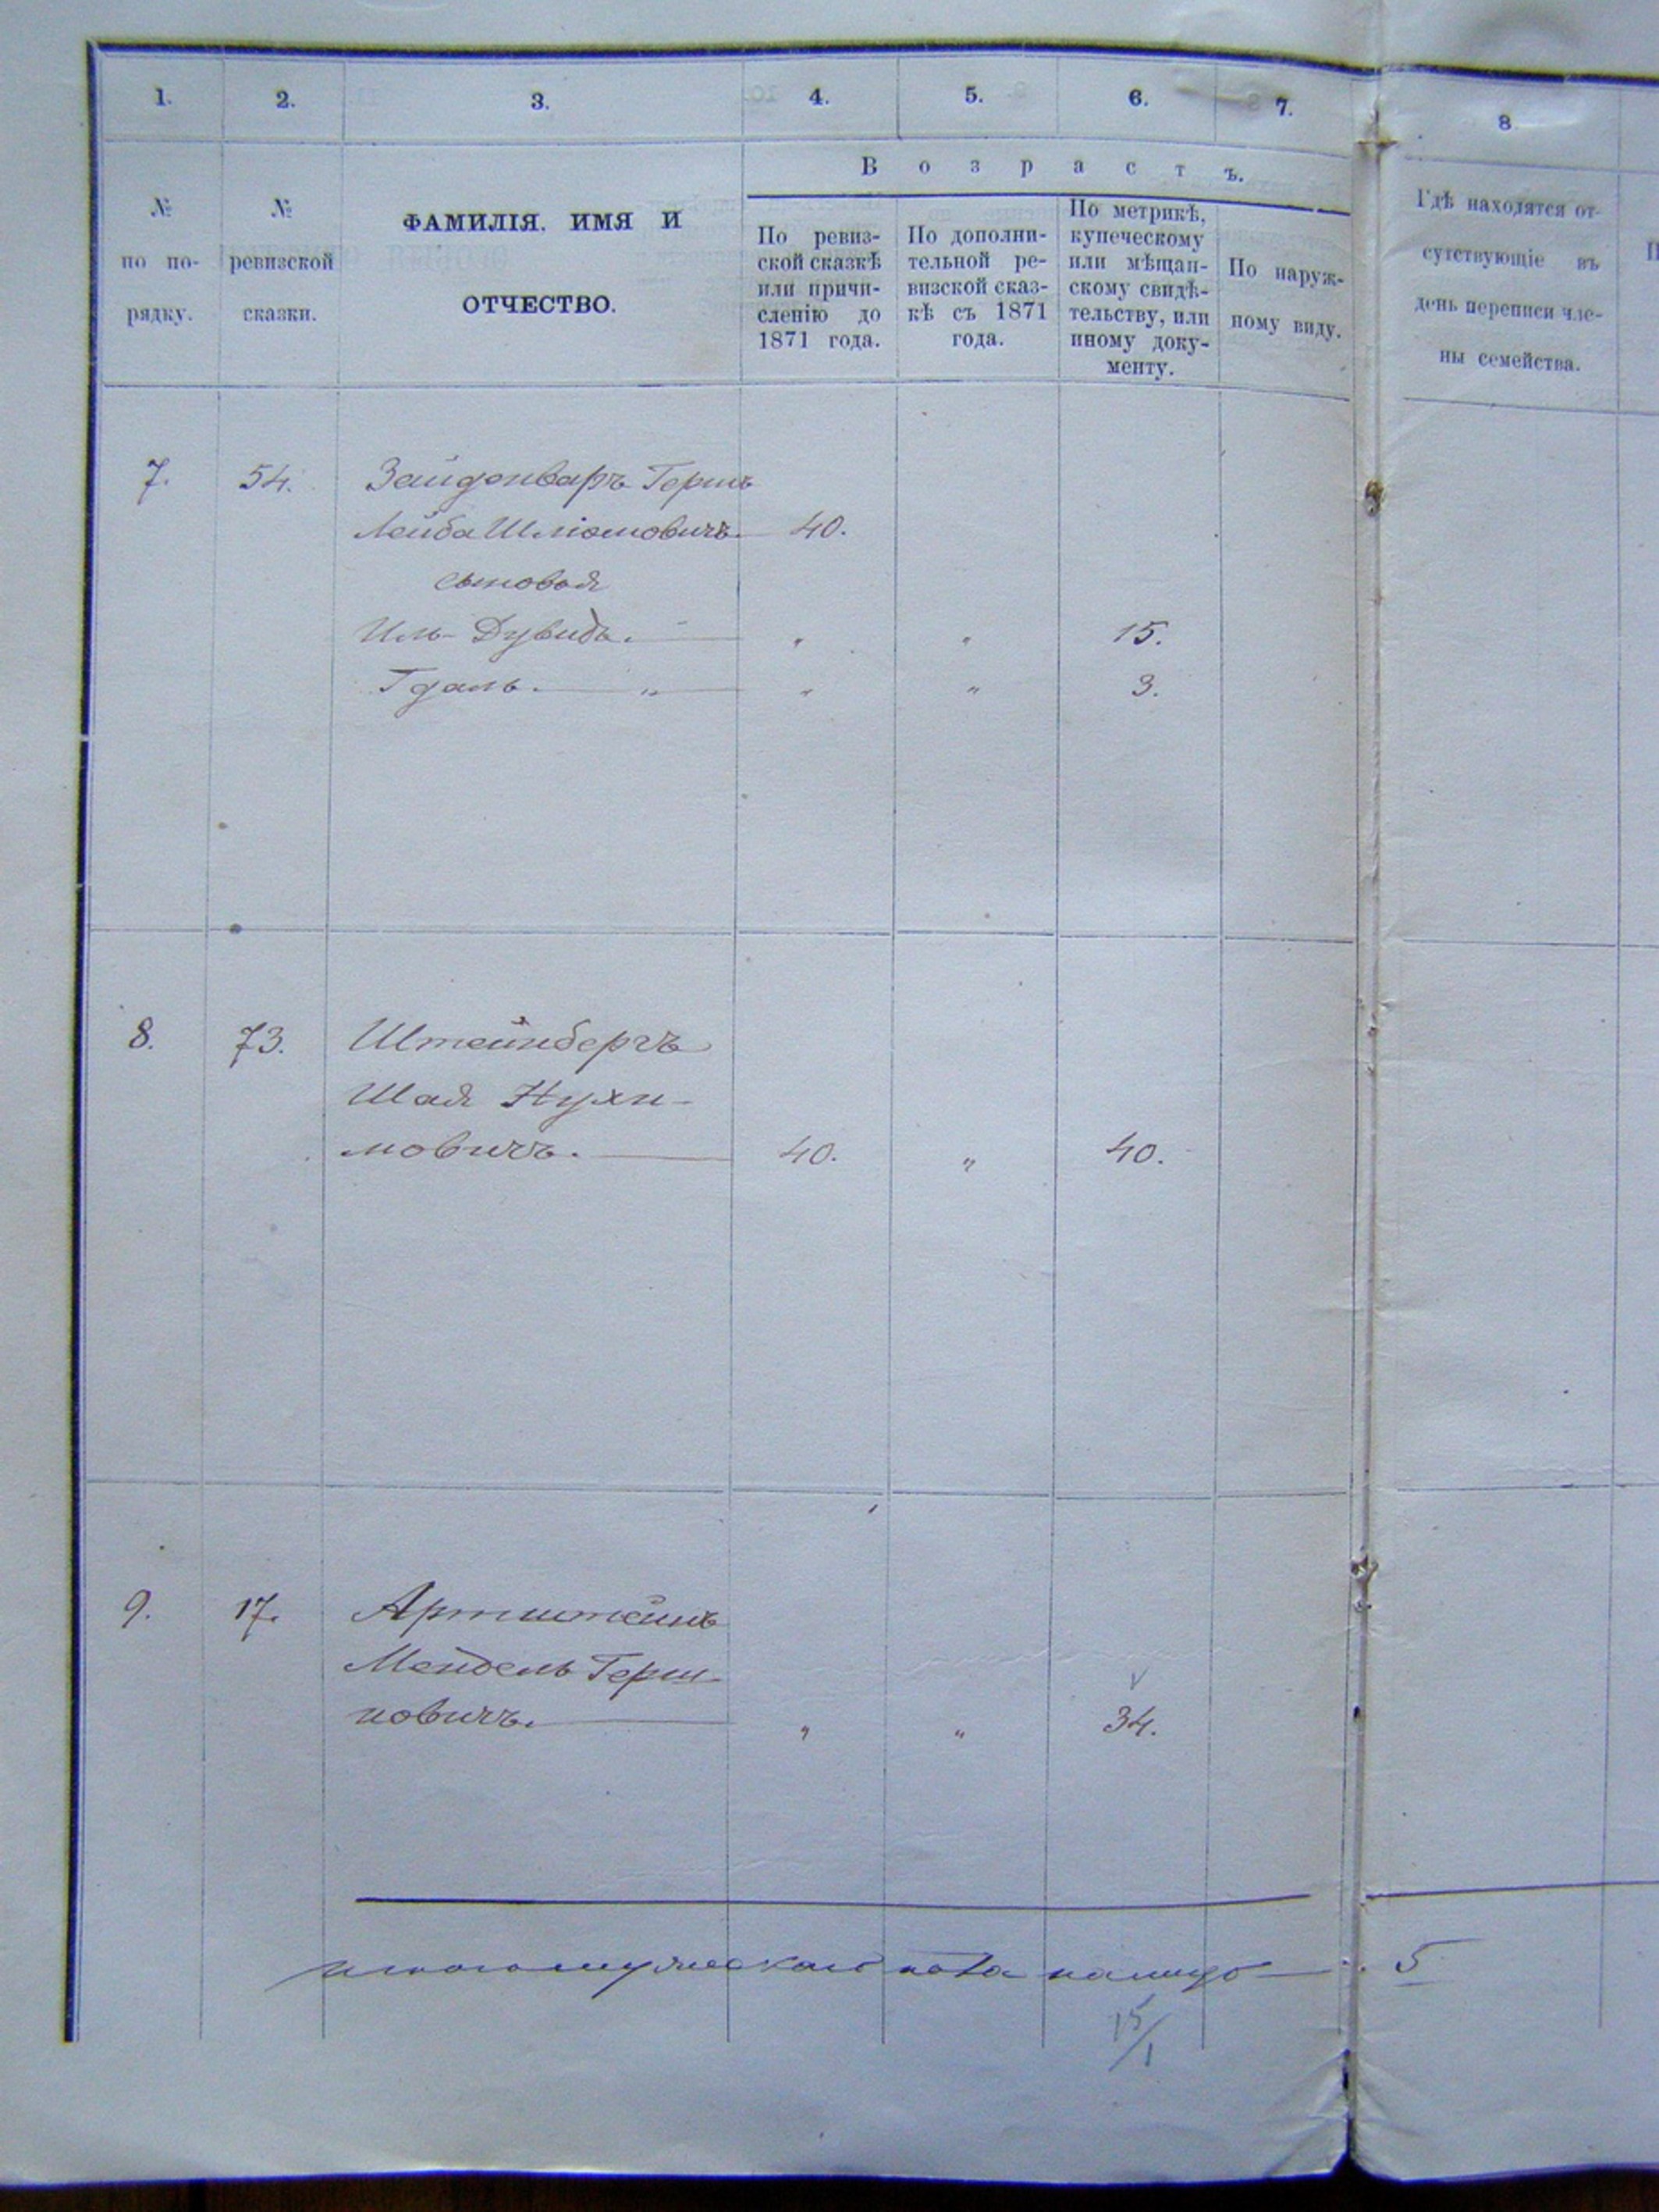 1. 2. 3. 4. 5. 6. 7. 8
Возрастъ.
№ по по-
рядку.
№ ревизской
сказки.
ФАМИЛІЯ, ИМЯ И
ОТЧЕСТВО.
По ревиз-
ской сказкѣ
или причи-
сленію до
1871 года.
По дополни-
тельной ре-
визской сказ-
кѣ съ 1871
года.
По метрикѣ,
купеческому
или мѣщан-
скому свидѣ-
тельству, или
иному доку-
менту.
По наруж-
ному виду.
Гдѣ находятся от-
сутствующіе въ
день переписи чле-
ны семейства.
7. 54. Зайденваръ Гершъ
Лейба Шліомовичъ 40.
сыновья
Иль-Дувидъ. " " 15.
Гдаль. " " " 3.
8. 73. Штейнбергъ
Шая Нухи-
мовичъ. 40. " 40.
9. 17. Артштейнъ
Мендель Герш-
ковичъ. " " 34.
пола налицо 5
15/1